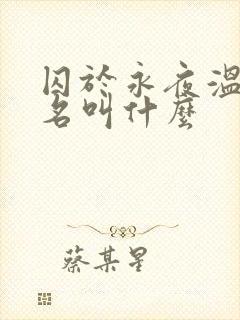 囚於永夜溫
名叫什麼
蔡某星